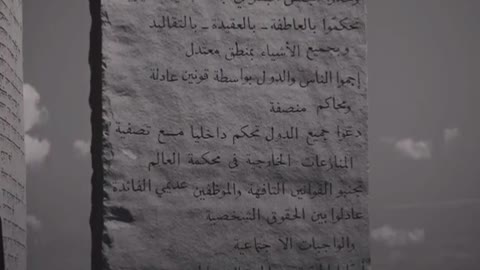 تحكموا بالعاطفة - بالعقيدة - بالتقاليد
وبجميع الأشياء بمنطق معتدل
إحموا الناس والدول بواسطة قونين عادلة
ومحاكم منصفة
دعوا جميع الدول تحكم داخليا مع تصفية
المنازعات الخارجية في محكمة العالم
تجنبو القوانين التافهة والموظفين عديمي الفائدة
عادلوا بين الحقوق الشخصية
والواجبات الاجتماعية